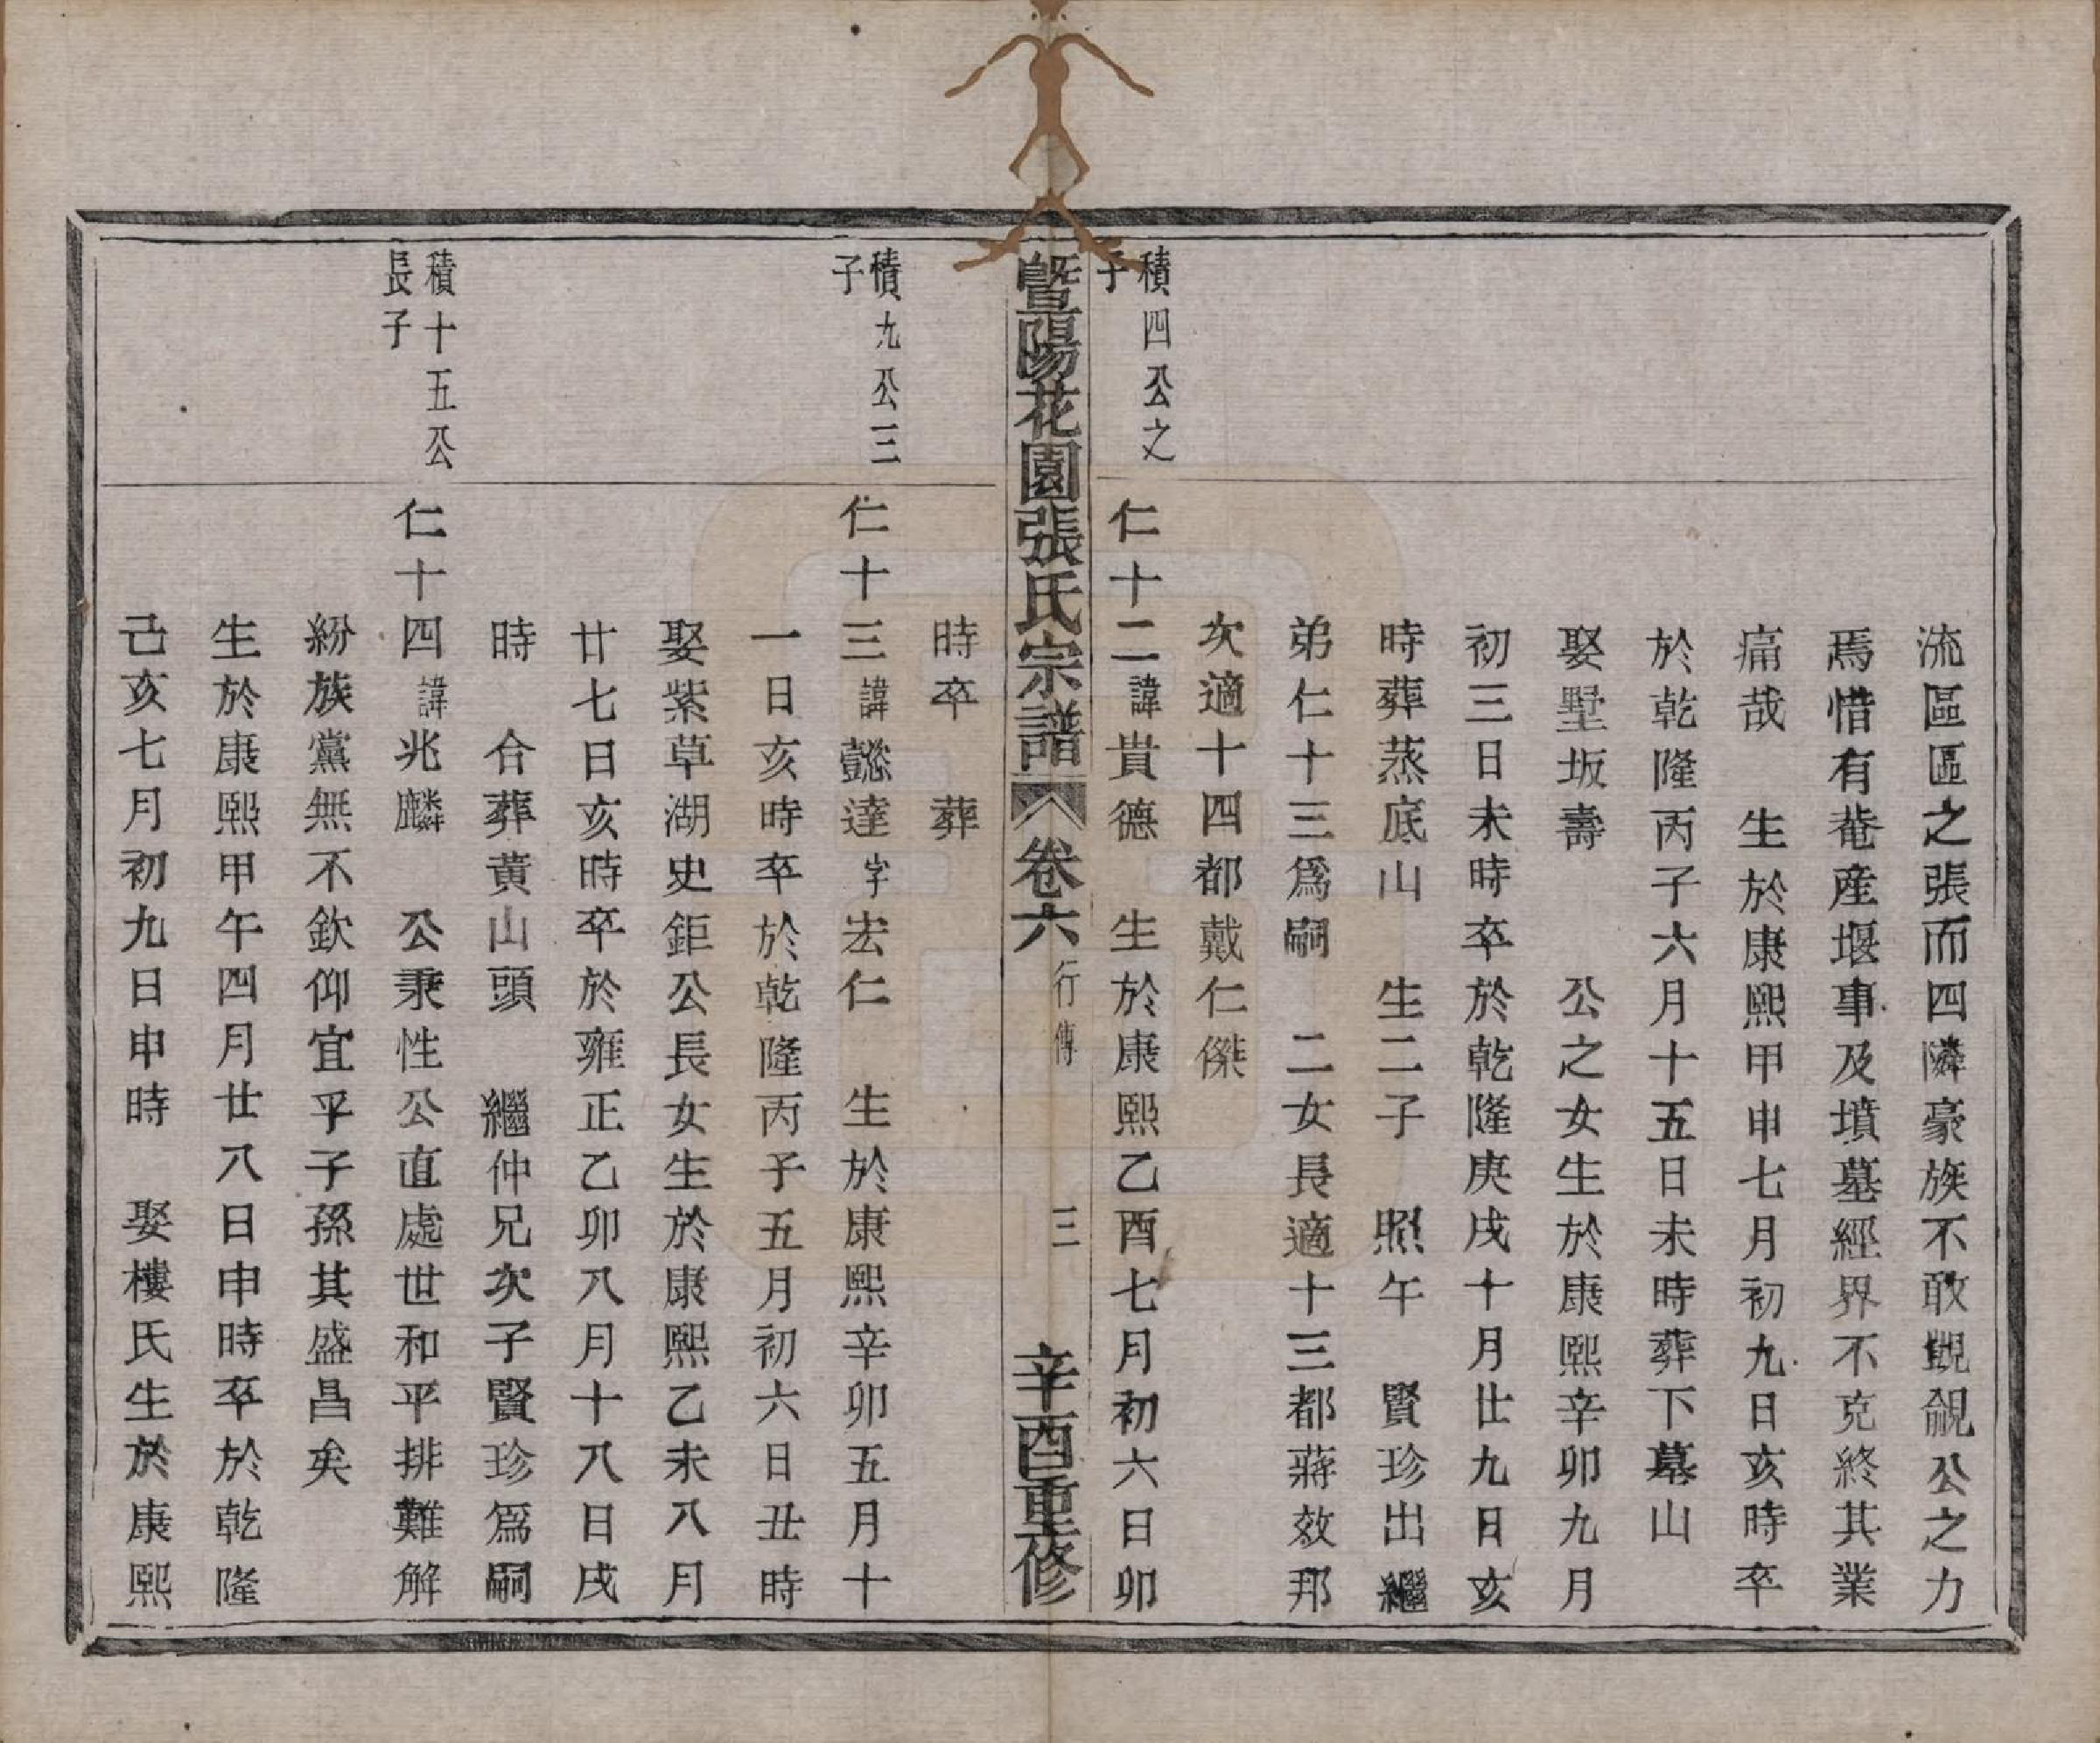 流區區之張而四隣豪族不敢覬覦公之力
焉惜有菴産堰事及墳墓經界不克終其業
痛哉　生於康熙甲申七月初九日亥時卒
於乾隆丙子六月十五日未時葬下墓山
娶墅坂壽　　公之女生於康熙辛卯九月
初三日未時卒於乾隆庚戌十月廿九日亥
時葬蒸底山　生二子　照午　賢珍出繼
弟仁十三爲嗣　二女長適十三都蔣效邦
次適十四都戴仁傑
積四公之
子
仁十二諱貴德　生於康熙乙酉七月初六日卯
暨陽花園張氏宗譜　卷六　行傳　三　辛酉重修
時卒　葬
積九公三
子
仁十三諱懿達字宏仁　生於康熙辛卯五月十
一日亥時卒於乾隆丙子五月初六日丑時
娶紫草湖史鉅公長女生於康熙乙未八月
廿七日亥時卒於雍正乙卯八月十八日戌
時　合葬黄山頭　繼仲兄次子賢珍爲嗣
積十五公
長子
仁十四諱兆麟　公秉性公直處世和平排難解
紛族黨無不欽仰宜乎子孫其盛昌矣
生於康熙甲午四月廿八日申時卒於乾隆
己亥七月初九日申時　娶樓氏生於康熙